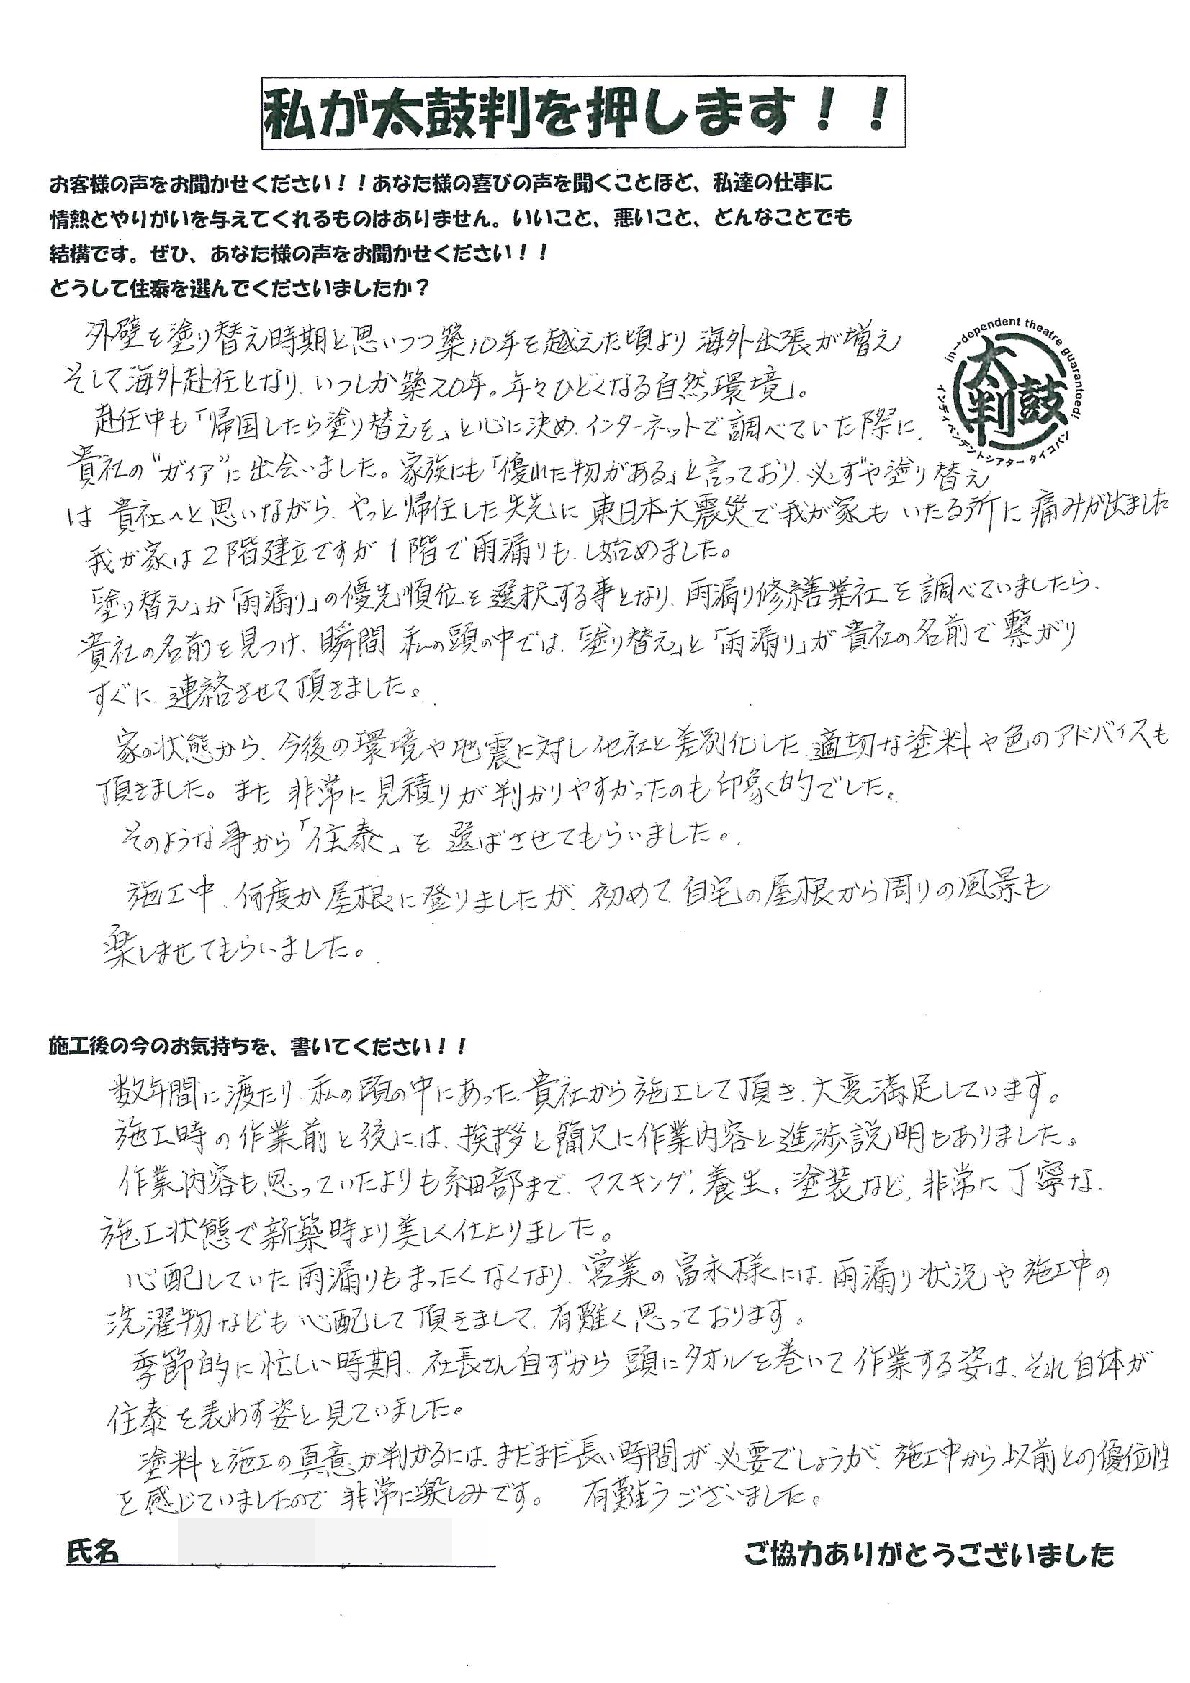 私が太鼓判を押します！！
お客様の声をお聞かせください！！あなた様の喜びの声を聞くことほど、私達の仕事に
情熱とやりがいを与えてくれるものはありません。いいこと、悪いこと、どんなことでも
結構です。ぜひ、あなた様の声をお聞かせください！！
どうして住泰を選んでくださいましたか？
外壁を塗り替え時期と思いつつ築10年を越えた頃より海外出張が増え
そして海外赴任となり、いつしか築20年。年々ひどくなる自然環境」。
赴任中も「帰国したら塗り替えを」と心に決め、インターネットで調べていた際に、
貴社の"ガイア"に出会いました。家族にも「優れた物がある」と言っており、必ずや塗り替え
は貴社へと思いながら、やっと帰任した矢先に東日本大震災で我が家もいたる所に痛みが出ました
我が家は2階建立ですが1階で雨漏りも始めました。
「塗り替え」か「雨漏り」の優先順位を選択する事となり、雨漏り修繕業社を調べていましたら、
貴社の名前を見つけ、瞬間私の頭の中では、「塗り替え」と「雨漏り」が貴社の名前で繋がり
すぐに連絡させて頂きました。
家の状態から、今後の環境や地震に対し他社と差別化した適切な塗料や色のアドバイスも
頂きました。また非常に見積りが判かりやすかったのも印象的でした。
そのような事から「住泰」を選ばさせてもらいました。
施工中、何度か屋根に登りましたが、初めて自宅の屋根から周りの風景も
楽しませてもらいました。
in-dependent theatre guaranteed!
太鼓判
インディペンデントシアター タイコバン
施工後の今のお気持ちを、書いてください！！
数年間に渡たり、私の頭の中にあった貴社から施工して頂き、大変満足しています。
施工時の作業前と後には、挨拶と簡欠に作業内容と進渉説明もありました。
作業内容も思っていたよりも細部まで、マスキング、養生、塗装など、非常に丁寧な、
施工状態で新築時より美しく仕上りました。
心配していた雨漏りもまったくなくなり、営業の富永様には、雨漏り状況や施工中の
洗濯物なども心配して頂きまして、有難く思っております。
季節的に忙しい時期、社長さん自ずから頭にタオルを巻いて作業する姿は、それ自体が
住泰を表わす姿と見ていました。
塗料と施工の真意が判かるには、まだまだ長い時間が必要でしょうが、施工中から以前との優位性
を感じていましたので非常に楽しみです。 有難うございました。
氏名
ご協力ありがとうございました